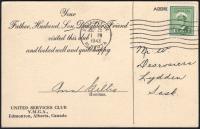 Your
Father, Husband, Son, Daughter, Friend
visited this club
and looked well and quite happy
Ann Gillis
Hostess.
UNITED SERVICES CLUB
Y.M.C.A.
Edmonton, Alberta, Canada
ADDRE
PM
1943
Mr. W.
Lydden
Sask.